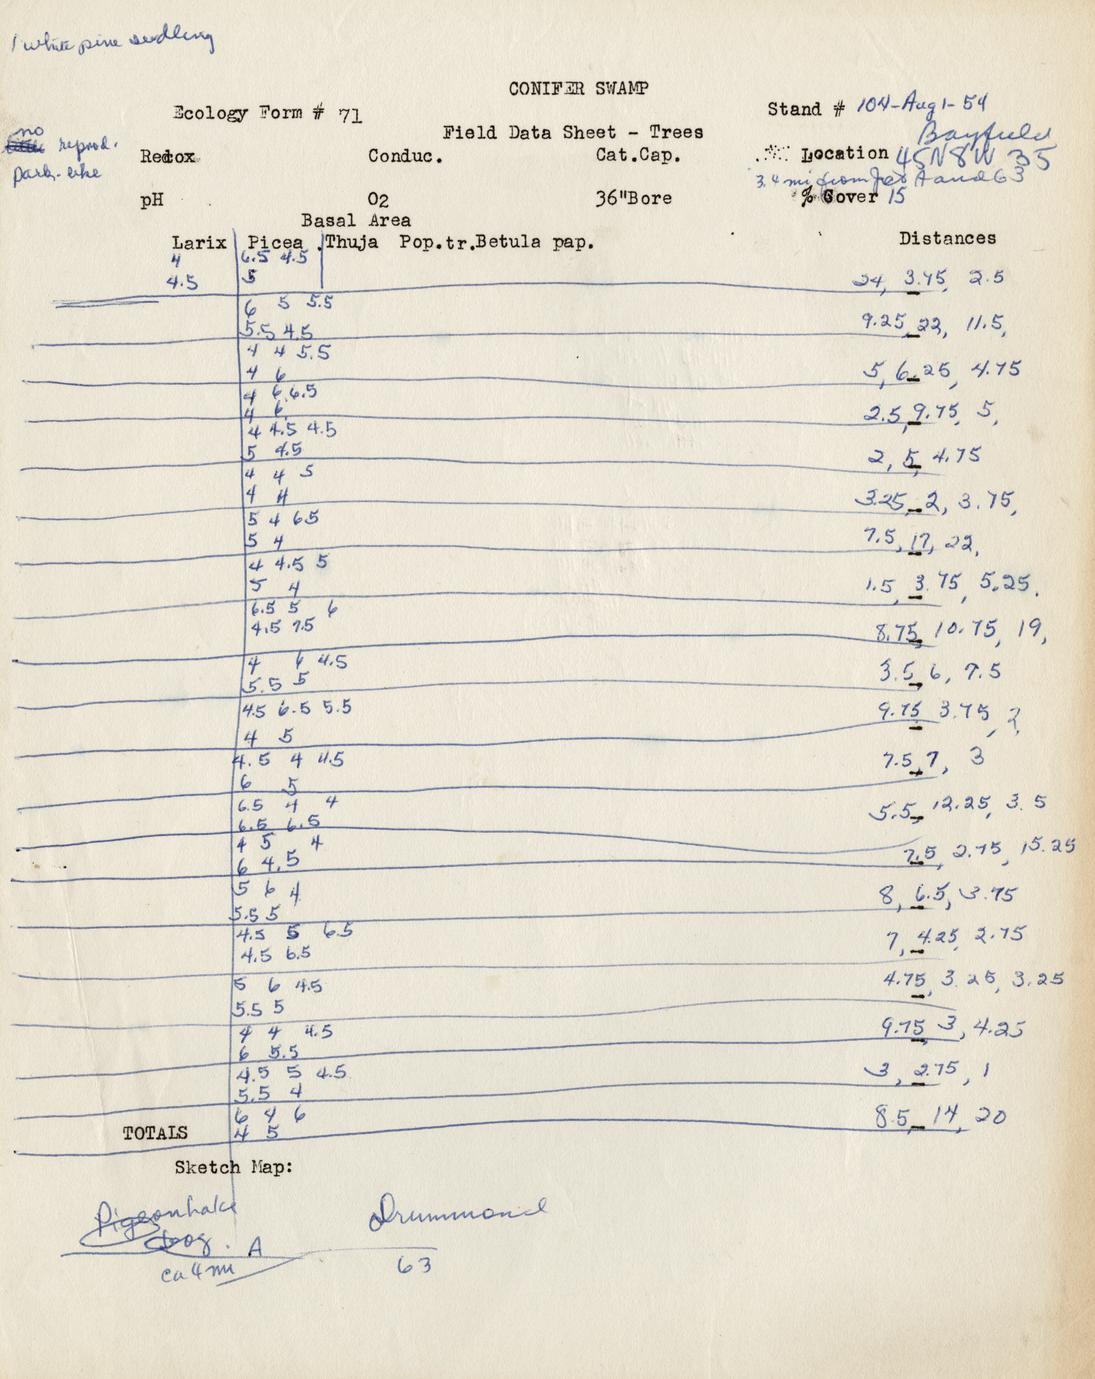 1 white pine seedling
CONIFER SWAMP
Ecology Form # 71
Stand # 104-Aug 1-54
Field Data Sheet - Trees
Bayfield
no
reprod.
park-like
Redox Conduc. Cat.Cap. Location 45N 8W 35
3.4 mi from jct A and 63
pH O2 36"Bore % Cover 15
Basal Area
Larix Picea Thuja Pop.tr. Betula pap. Distances
4 6.5 4.5
4.5 5 24, 3.75, 2.5
6 5 5.5
5.5 4.5 9.25, 22, 11.5,
4 4 5.5
4 6 5, 6.25, 4.75
4 6 6.5
4 6 2.5, 9.75, 5,
4 4.5 4.5
5 4.5 2, 5, 4.75
4 4 5
4 4 3.25, 2, 3.75,
5 4 6.5
5 4 7.5, 17, 22,
4 4.5 5
5 4 1.5, 3.75, 5.25.
6.5 5 6
4.5 7.5 8.75, 10.75, 19,
4 6 4.5
5.5 5 3.5, 6, 7.5
4.5 6.5 5.5 9.75, 3.75, 2,
4 5
4.5 4 4.5 7.5, 7, 3
6 5
6.5 4 4 5.5, 12.25, 3.5
6.5 6.5
4 5 4
6 4.5 7.5, 2.75, 15.25
5 6 4 8, 6.5, 3.75
5.5 5
4.5 5 6.5 7, 4.25, 2.75
4.5 6.5
5 6 4.5 4.75, 3.25, 3.25
5.5 5
4 4 4.5 9.75, 3, 4.25
6 5.5
4.5 5 4.5 3, 2.75, 1
5.5 4
6 4 6 8.5, 14, 20
TOTALS 4 5
Sketch Map:
Pigeon Lake Drummond
bog. A
ca 4 mi 63